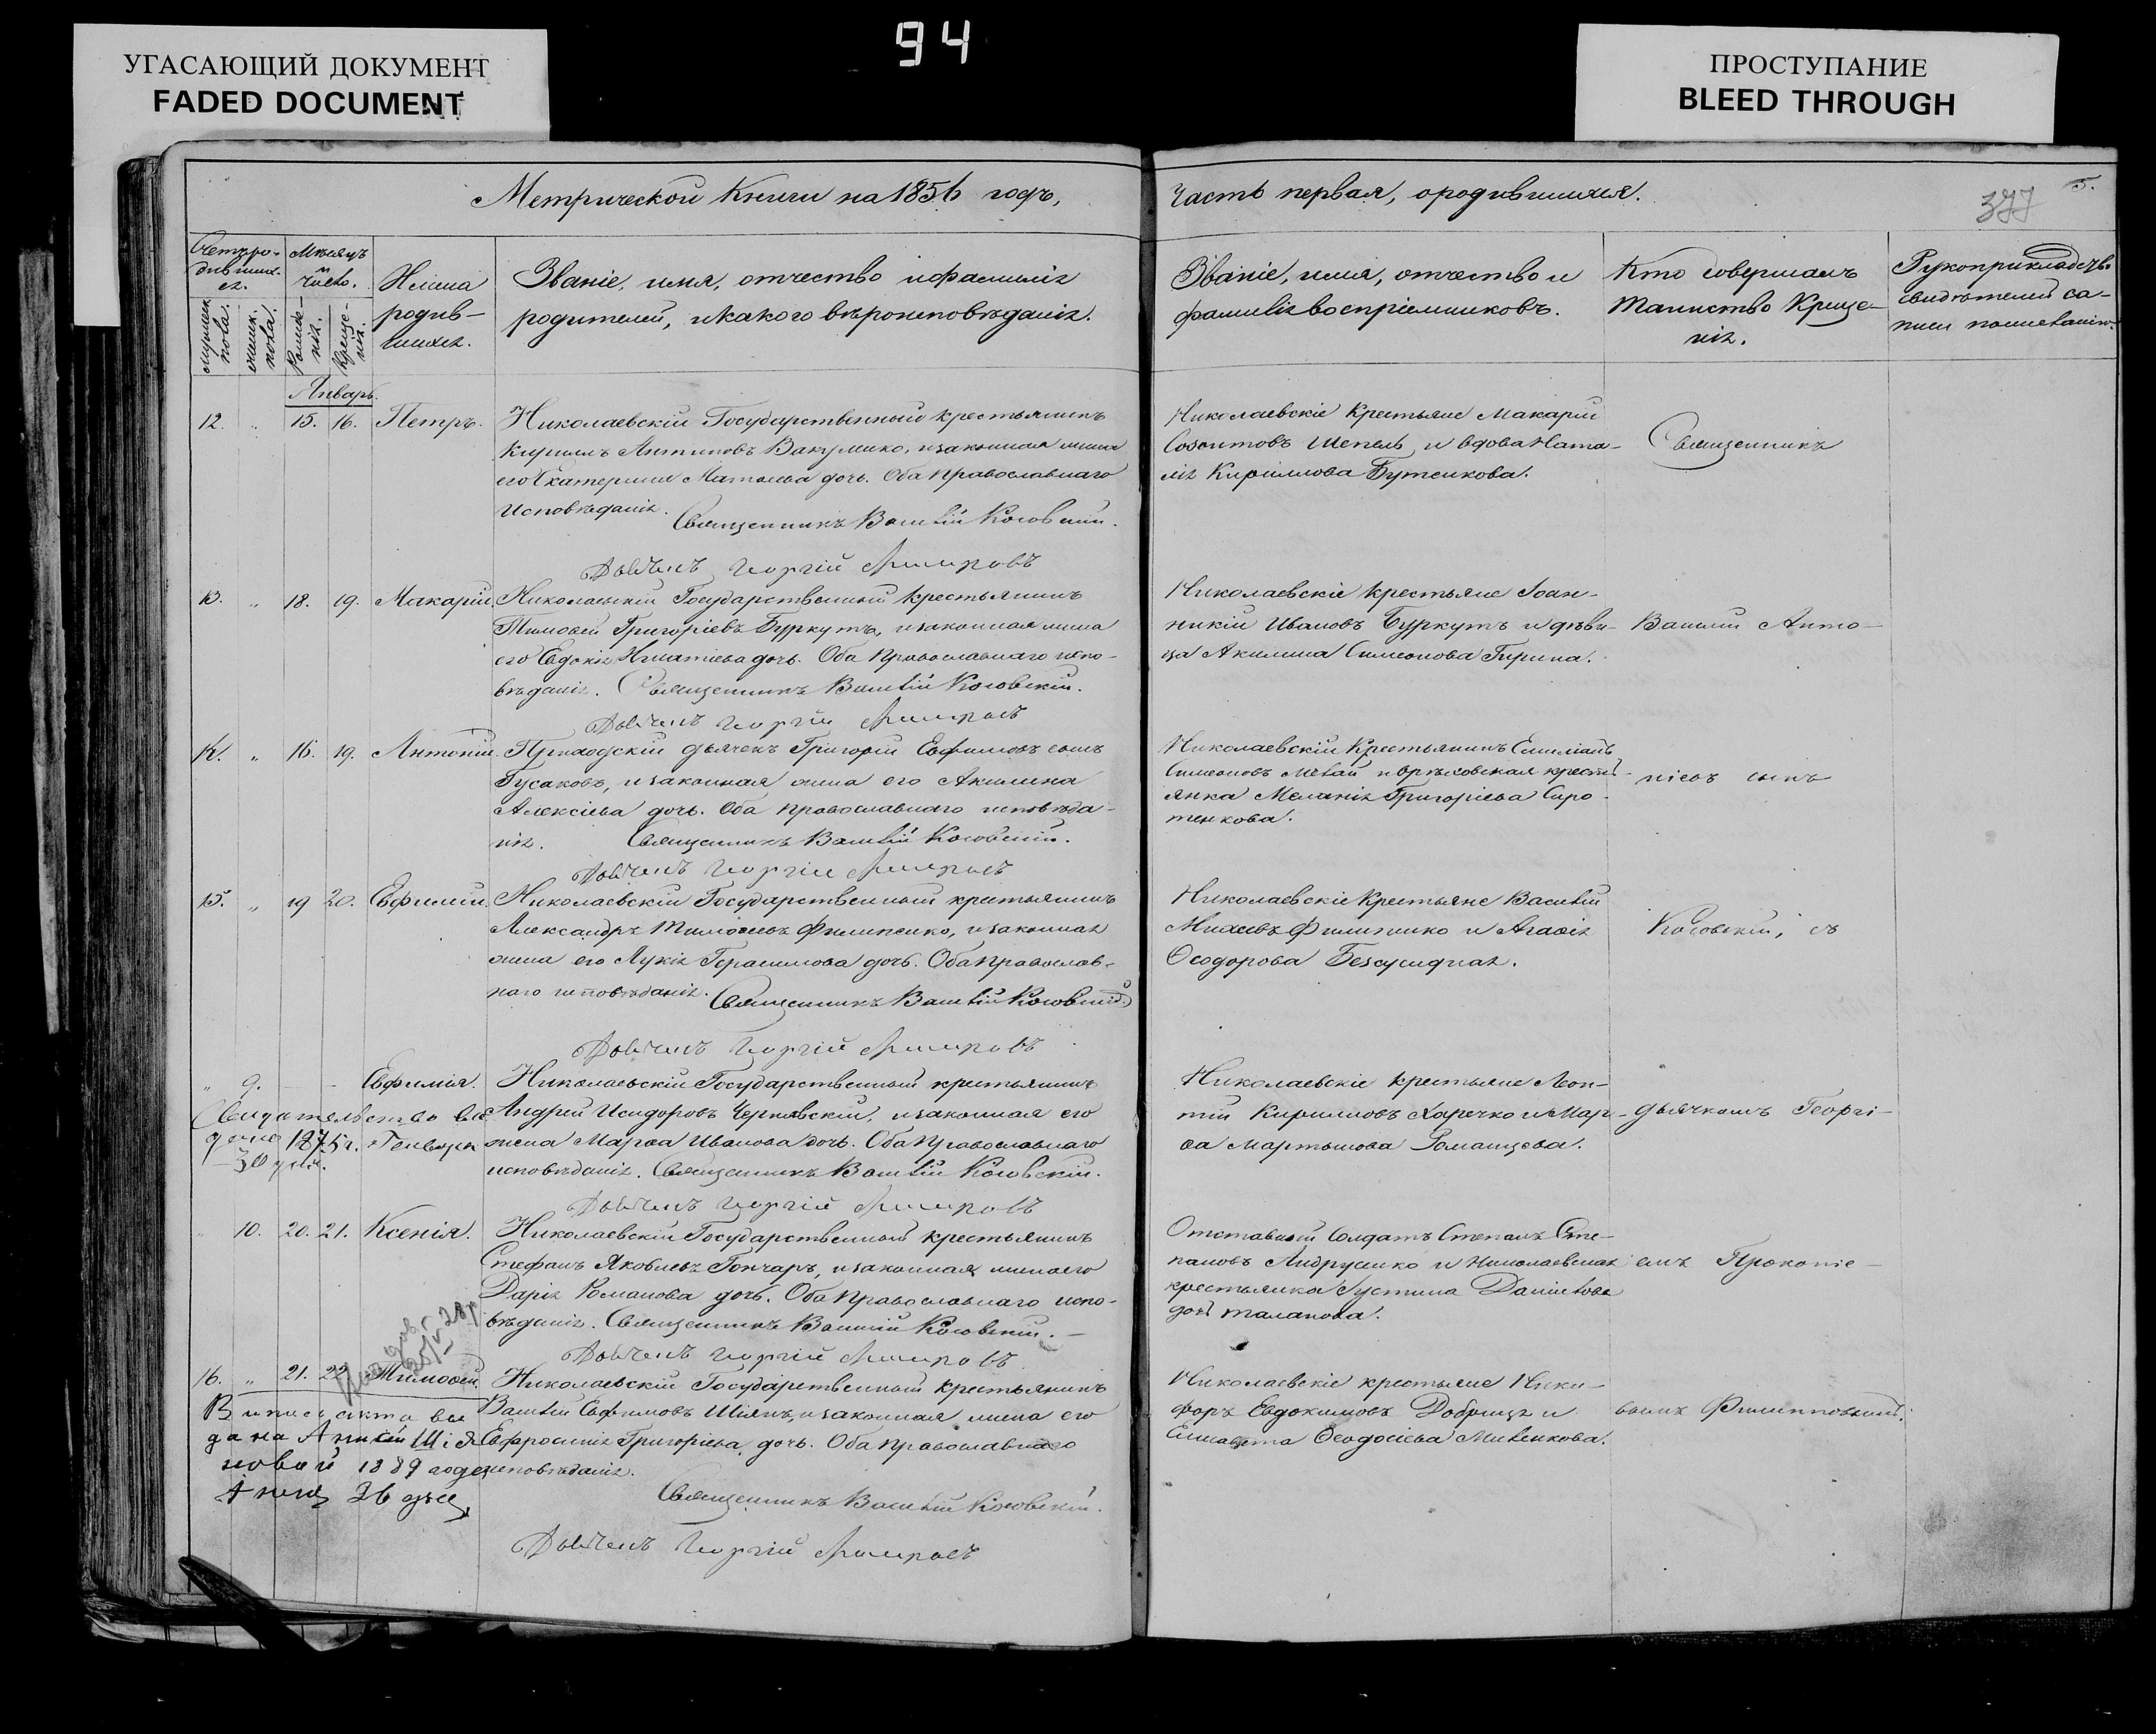 94
УГАСАЮЩИЙ ДОКУМЕНТ
FADED DOCUMENT
ПРОСТУПАНИЕ
BLEED THROUGH
Метрической Книги на 1856 годъ,
Часть первая, о родившихся.
377
5.
Счетъ родившихся.
мужеск. пола.
женск. пола.
Мѣсяцъ и число.
Рожденія.
Крещенія.
Имена
родив-
шихся.
Званіе, имя, отчество и фамилія
родителей, и какого вѣроисповѣданія.
Званіе, имя, отчество и
фамилія воспріемниковъ.
Кто совершалъ
таинство Креще-
нія.
Рукоприкладство
свидѣтелей за-
писи по желанію.
Январь.
12. " 15. 16. Петръ.
Николаевскій Государственный крестьянинъ
Кирилъ Антиповъ Вакуленко, и законная жена
его Екатерина Матвеева дочь. Оба православнаго
исповѣданія. Священникъ Василій Косовскій.
Дьячекъ Георгій
Николаевскіе крестьяне Макарій
Созонтовъ Шепель и вдова Ната-
лія Кирилова Бутенкова.
Священникъ
13. " 18. 19. Макарій.
Николаевскій Государственный крестьянинъ
Тимоѳей Григоріевъ Буркутъ, и законная жена
его Евдокія Игнатіева дочь. Оба православнаго испо-
вѣданія. Священникъ Василій Косовскій.
Дьячекъ Георгій
Николаевскіе крестьяне Іоан-
никій Ивановъ Буркутъ и дѣви-
ца Акилина Симеонова Гирина.
Василій Анто-
14. " 16. 19. Антоній.
Приходскій дьячекъ Григорій Евфимовъ сынъ
Гусаковъ, и законная жена его Акилина
Алексіева дочь. Оба православнаго исповѣда-
нія. Священникъ Василій Косовскій.
Дьячекъ Георгій
Николаевскій крестьянинъ Емиліанъ
Симеоновъ и Орѣховская кресть-
янка Меланія Григоріева Сиро-
тенкова.
ніевъ сынъ
15. " 19 20. Евфимій.
Николаевскій Государственный крестьянинъ
Александръ Тимоѳеевъ Филипенко, и законная
жена его Лукія Герасимова дочь. Оба православ-
наго исповѣданія. Священникъ Василій Косовскій.
Дьячекъ Георгій
Николаевскіе крестьяне Василій
Михеевъ Филипенко и Агаѳія
Ѳеодорова Безсуидная.
Косовскій, съ
" 9. - - Евфимія.
Николаевскій Государственный крестьянинъ
Андрей Исидоровъ Чернявскій, и законная его
жена Марѳа Иванова дочь. Оба православнаго
исповѣданія. Священникъ Василій Косовскій.
Дьячекъ Георгій
Свидѣтельство вы
дано 1875 г. Генваря
30 дня.
Николаевскіе крестьяне Леон-
тій Кириловъ Харечко и Мар-
ѳа Мартынова Романцева.
дьячкомъ Георгі-
" 10. 20. 21. Ксенія.
Николаевскій Государственный крестьянинъ
Стефанъ Яковлевъ Гончаръ, и законная жена его
Дарія Романова дочь. Оба православнаго испо-
вѣданія. Священникъ Василій Косовскій.
Дьячекъ Георгій
Отставной Солдатъ Степанъ Сте-
пановъ Андрущенко и Николаевская
крестьянка Іустина Даніилова
дочь Таланова.
емъ Прокопіе-
16. " 21. 22. Тимоѳей.
Николаевскій Государственный крестьянинъ
Василій Евфимовъ Шіянъ, и законная жена его
Евфросинія Григоріева дочь. Оба православнаго
исповѣданія.
Священникъ Василій Косовскій.
Дьячекъ Георгій
Выпись акта вы
дана Шія
новой 1889 года
26 дня
Николаевскіе крестьяне Ники-
форъ Евдокимовъ Добрица и
Елисавета Ѳеодосіева Миленкова.
вымъ Филипповымъ.